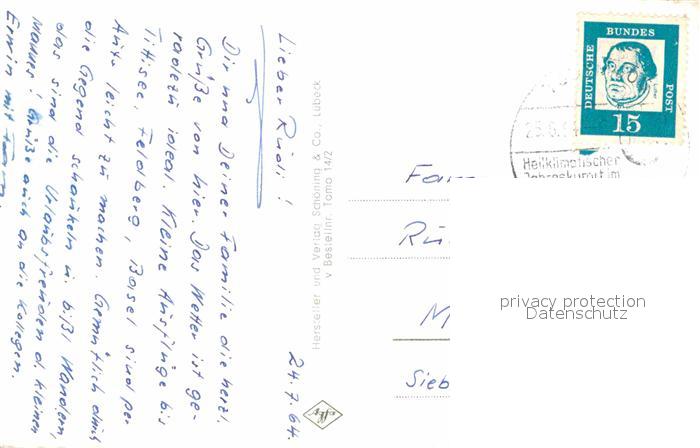 Lieber Rüdi!
24.7.64.
Dir und Deiner Familie die herzl.
Grüße von hier. Das Wetter ist ge-
radezu ideal. Kleine Ausflüge bis
Titisee, Feldberg, Basel sind per
Auto leicht zu machen. Gemütlich durch
die Gegend schaukeln u. bißl Wandern,
das sind die Urlaubsfreuden d. kleinen
Mannes! Grüße auch an die Kollegen.
Erwin mit Fam.
Hersteller und Verlag Schöning & Co., Lübeck
v Bestellnr. Tomo 14/2
afks
DEUTSCHE BUNDES POST
Luther
15
Heilklimatischer
Jahreskurort im
Fam
Rü
Sieb
privacy protection
Datenschutz